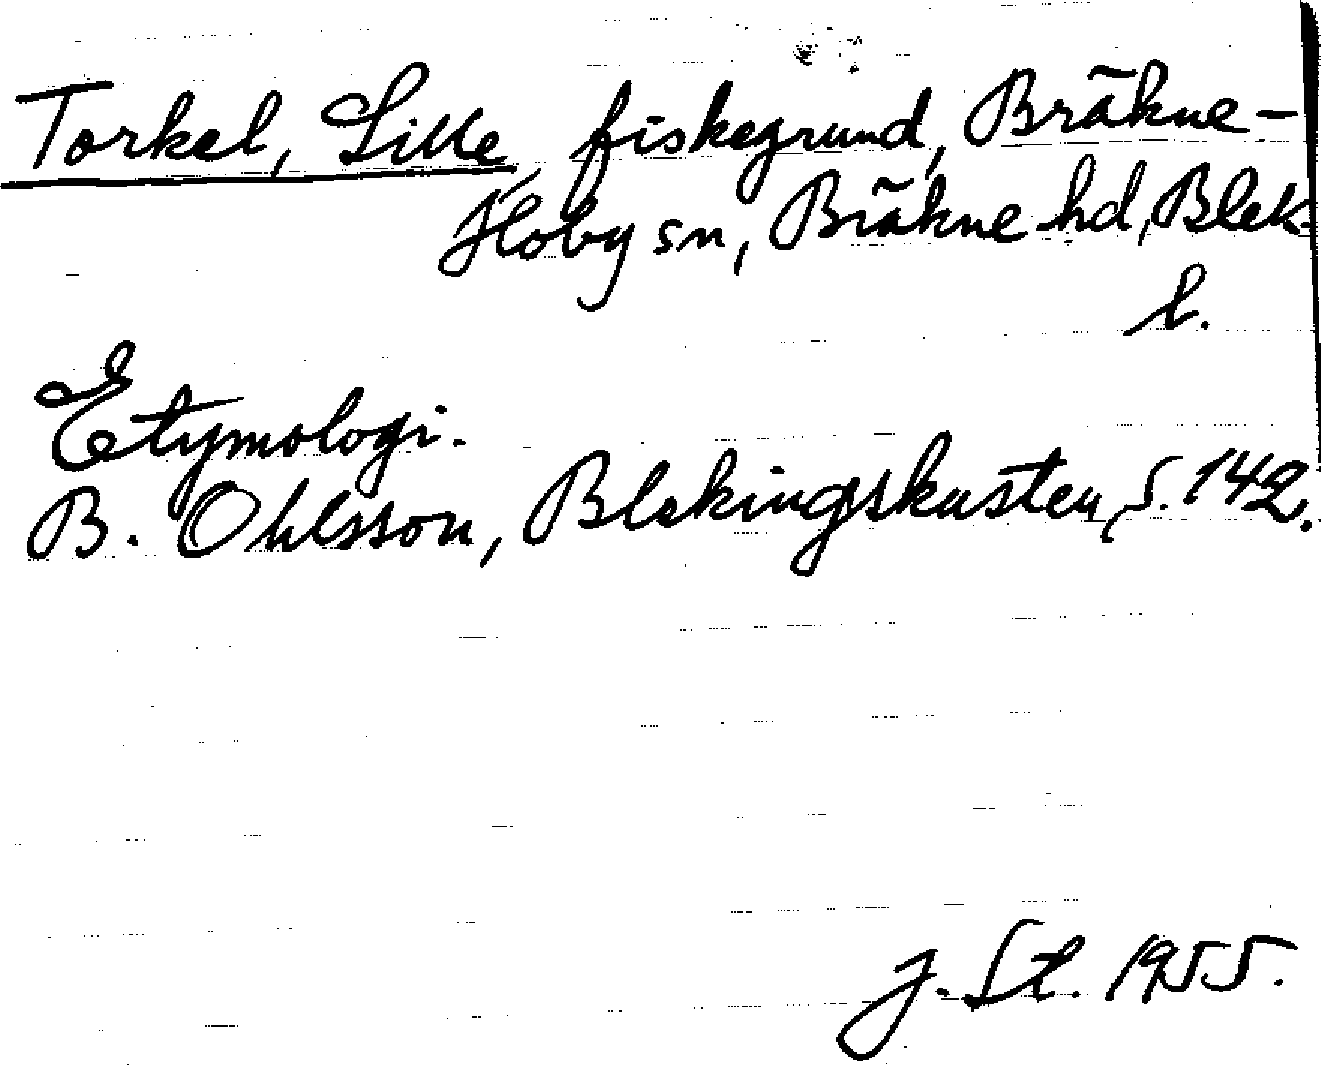 Torkel, Lille fiskegrund, Bräkne-
Hoby sn, Bräkne hd, Blek
l.
Etymologi.
B. Ohlsson, Blekingskusten, s. 142.
J. St. 1955.